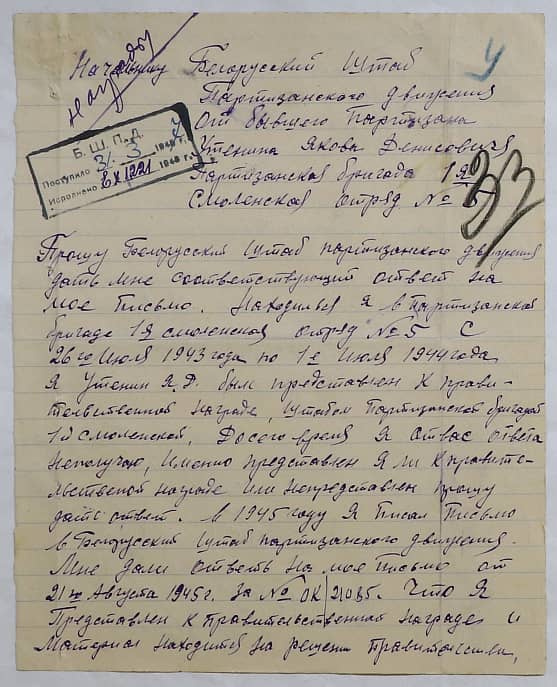 награды
Начальнику Белорусский Штаб
Партизанского движения
От бывшего Партизана
Утенина Якова Денисовича
Партизанская бригада 1я
Смоленская отряд № 5
У
33
Б. Ш. П. Д.
Поступило 31/3 194 г.
Исполнено Вх 1221 1946 г.
Прошу Белорусский Штаб партизанского движения
дать мне соответствующий ответ на
мое Письмо. Находился Я в Партизанской
бригаде 1я Смоленская отряд № 5 С
26го Июля 1943 года по 1е Июля 1944 года
Я Утенин Я.Д. был представлен К прави-
тельственной Награде, Штабом Партизанской бригадой
1й Смоленской, Досего время Я отвас ответа
неполучаю, Именно представлен Я ли К правите-
льственой награде или непредставлен прошу
дать ответ. в 1945 году Я Писал Письмо
в Белорусский Штаб партизанского движения.
Мне дали ответь на мое Письмо от
21го Августа 1945 г. за № ОК/21085. Что Я
Представлен К Правительственной Награде и
Материал находится на решени